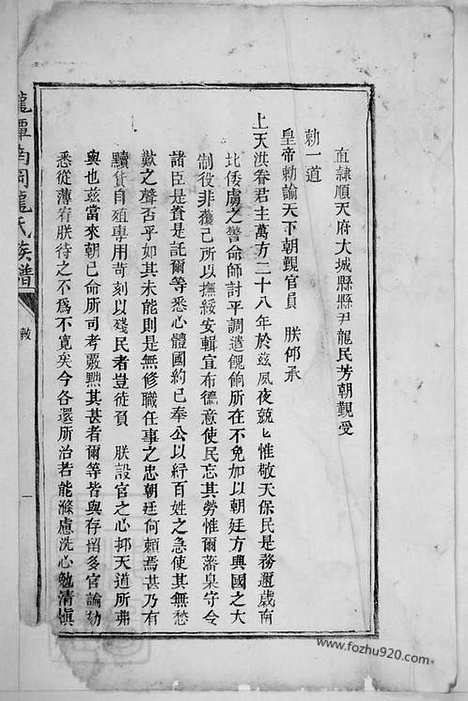 直隸順天府大城縣縣尹龍民芳朝覲受
勅一道
皇帝勅諭天下朝覲官員　朕仰承
上天洪眷君主萬方二十八年於玆夙夜兢兢惟敬天保民是務邇歲南
北倭虜之警命師討平調遣餽餉所在不免加以朝廷方興國之大
制役非獲已所以撫綏安輯宣布德意使民忘其勞惟爾藩臬守令
諸臣是資是託爾等悉心體國約已奉公以紓百姓之急使其無愁
歎之聲否乎如其未能則是無修職任事之忠朝廷何頼焉甚乃有
黷貨自殖專用苛刻以殘民者豈徒負　朕設官之心抑天道所弗
與也兹當來朝已命所司考覈黜其甚者爾等皆與存留多官論劾
悉從薄宥朕待之不爲不寛矣今各還所治若能滌慮洗心勉清慎
龍潭南岡龍氏族譜
敕
一
www.fozhu920.com